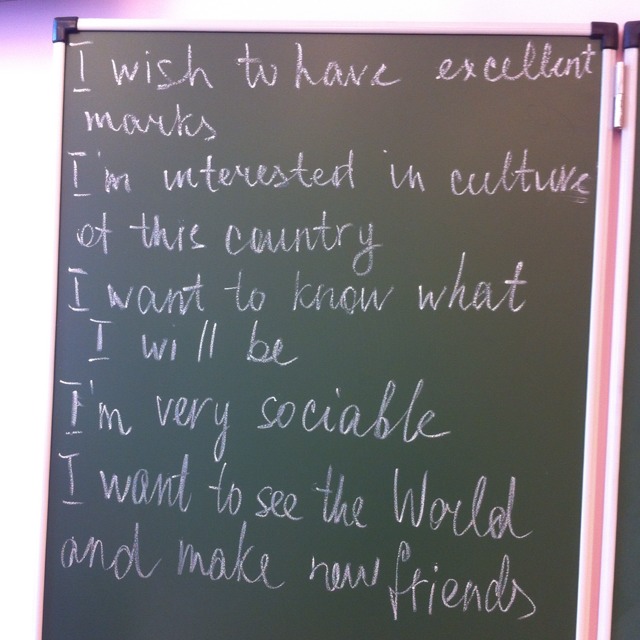 I wish to have excellent
marks
I'm interested in culture
of this country
I want to know what
I will be
I'm very sociable
I want to see the World
and make new friends